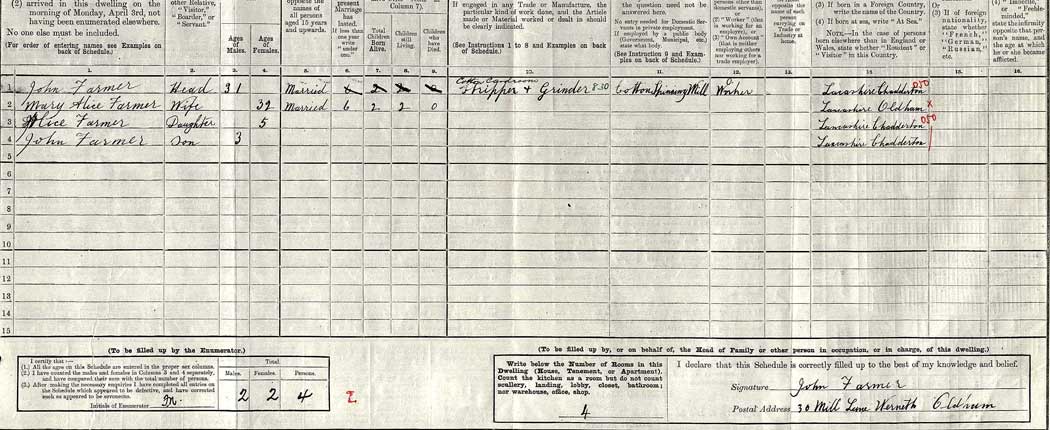 (2) arrived in this dwelling on the morning of Monday, April 3rd, not having been enumerated elsewhere.
No one else must be included.
(For order of entering names see Examples on back of Schedule.)
other Relative, "Visitor," "Boarder," or "Servant."
Ages of Males.
Ages of Females.
opposite the names of all persons aged 15 years and upwards.
present Marriage has lasted.
If less than one year write "under one."
Column 7).
Total Children Born Alive.
Children still Living.
Children who have Died.
If engaged in any Trade or Manufacture, the particular kind of work done, and the Article made or Material worked or dealt in should be clearly indicated.
(See Instructions 1 to 8 and Examples on back of Schedule.)
the question need not be answered here.
No entry needed for Domestic Servants in private employment.
If employed by a public body (Government, Municipal, etc.) state what body.
(See Instruction 9 and Examples on back of Schedule.)
persons other than domestic servants), or
(2) "Worker" (that is working for an employer), or
(3) "Own Account" (that is neither employing others nor working for a trade employer).
opposite the name of each person carrying on Trade or Industry at home.
(3) If born in a Foreign Country, write the name of the Country.
(4) If born at sea, write "At Sea."
NOTE.—In the case of persons born elsewhere than in England or Wales, state whether "Resident" or "Visitor" in this Country.
Or
(3) If of foreign nationality, state whether "French," "German," "Russian," etc.
(4) "Imbecile," or "Feeble-minded," state the infirmity opposite that person's name, and the age at which he or she became afflicted.
1. 2. 3. 4. 5. 6. 7. 8. 9. 10. 11. 12. 13. 14. 15. 16.
Cotton Cardroom
1 John Farmer Head 31 Married Stripper + Grinder 830 Cotton Spinning Mill Worker Lancashire Chadderton 050
2 Mary Alice Farmer Wife 32 Married 6 2 2 0 Lancashire Oldham x
3 Alice Farmer Daughter 5 Lancashire Chadderton 050
4 John Farmer Son 3 Lancashire Chadderton
5
6
7
8
9
10
11
12
13
14
15
(To be filled up by the Enumerator.)
I certify that:—
(1.) All the ages on this Schedule are entered in the proper sex columns.
(2.) I have counted the males and females in Columns 3 and 4 separately, and have compared their sum with the total number of persons.
(3.) After making the necessary enquiries I have completed all entries on the Schedule which appeared to be defective, and have corrected such as appeared to be erroneous.
Initials of Enumerator
Total.
Males. Females. Persons.
2 2 4
(To be filled up by, or on behalf of, the Head of Family or other person in occupation, or in charge, of this dwelling.)
Write below the Number of Rooms in this Dwelling (House, Tenement, or Apartment). Count the kitchen as a room but do not count scullery, landing, lobby, closet, bathroom; nor warehouse, office, shop.
4
I declare that this Schedule is correctly filled up to the best of my knowledge and belief.
Signature John Farmer
Postal Address 30 Mill Lane Werneth Oldham